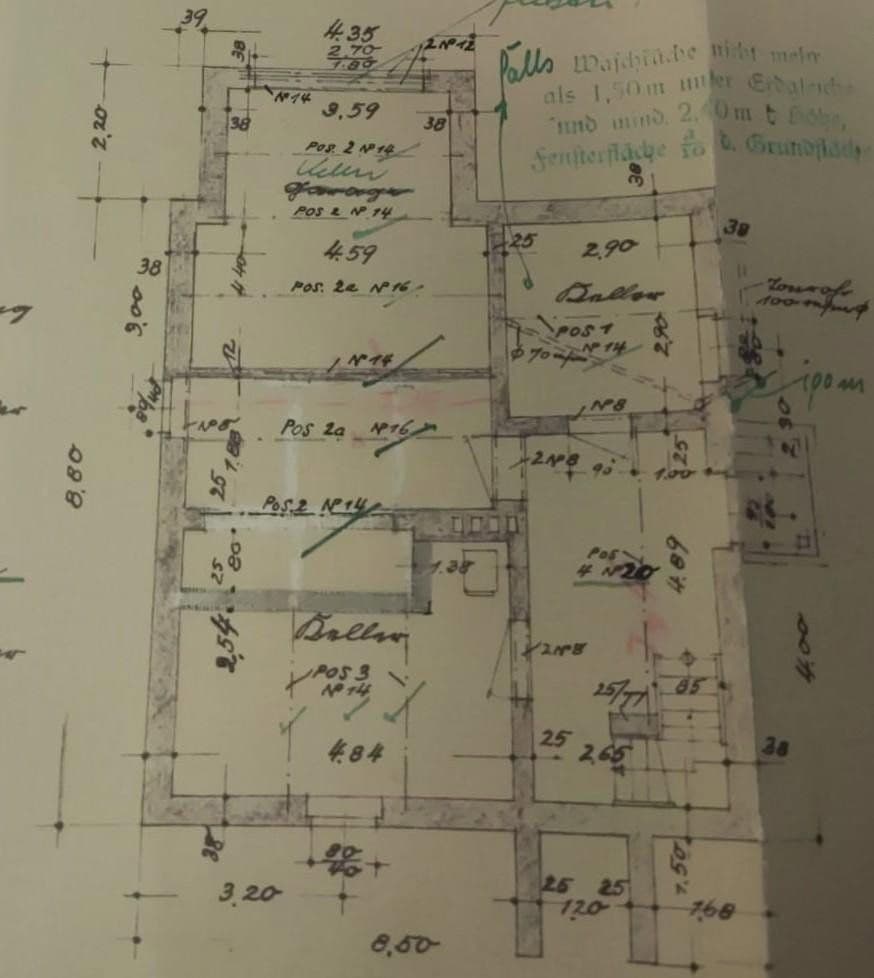 39
4.35
2.70
1.80
2 Nº 12
38
Nº 14
3.59
38
38
2,20
falls Waschküche nicht mehr
als 1,50 m unter Erdgleiche
und mind. 2,40 m Höhe,
Fensterfläche 1/10 d. Grundfläche
POS. 2 Nº 14
Garage
POS 2 Nº 14
38
4.59
25
2,90
38
38
4.40
POS. 2a Nº 16
Keller
Tonrohr
3,00
POS 1
Nº 14
2,90
12
Nº 14
Nº 8
Nº 8
POS 2a Nº 16
1.88
2 Nº 8
90
1.00
25
25
8.80
POS. 2 Nº 14
25
80
1.38
POS
4 Nº 20
4.89
Keller
2,54
2 Nº 8
POS 3
Nº 14
85
4.00
4.84
25
2,65
38
38
80
40
3.20
25
25
1.50
120
1,68
8,50